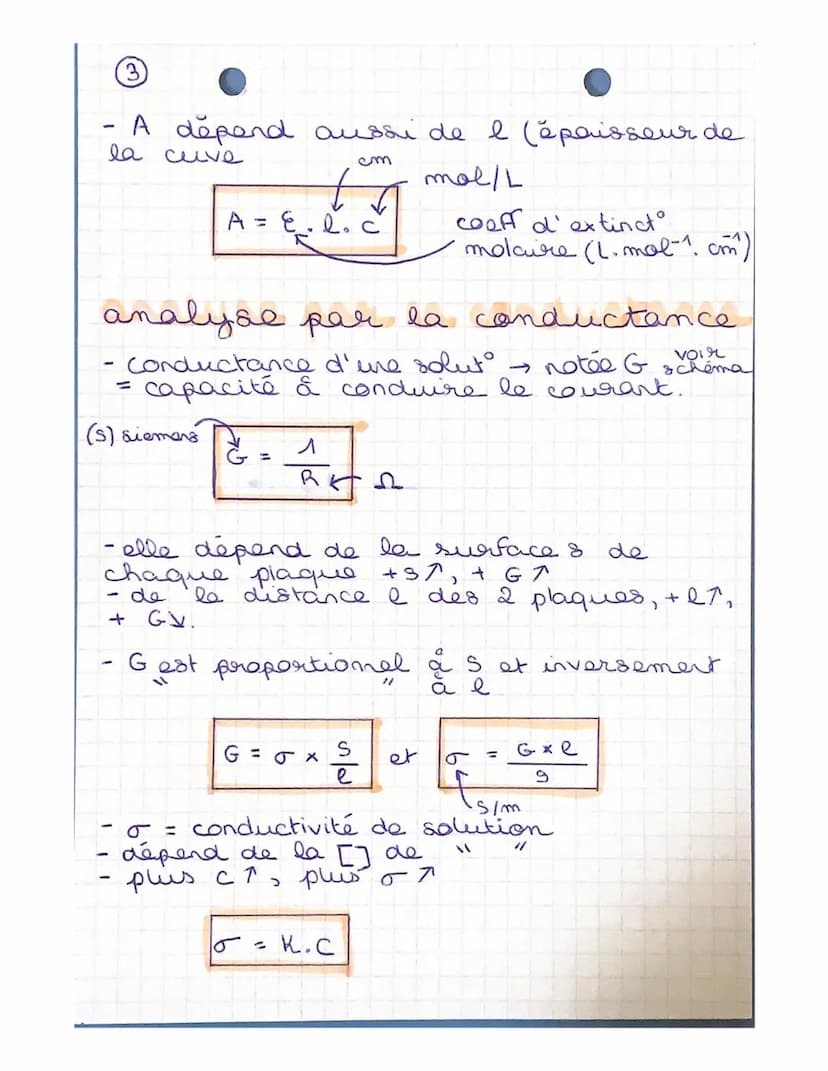 ③
- A dépend aussi de l (épaisseur de
la cuve
cm
mol/L
A = ε . l . c
coeff d'extinct°
molaire (L. mol⁻¹. cm⁻¹)
analyse par la conductance
- conductance d'une solut° → notée G voir schéma
= capacité à conduire le courant.
(S) siemens
G = 1/R ← Ω
- elle dépend de la surface s de
chaque plaque + s↑, + G↑
- de la distance l des 2 plaques, + l↑,
+ G↘.
- G est proportionnel à S et inversement
" " à l
G = σ × S/l et σ = G × l / S
S/m
- σ = conductivité de solution
- dépend de la [] de " "
- plus c ↑, plus σ ↑
σ = K.C